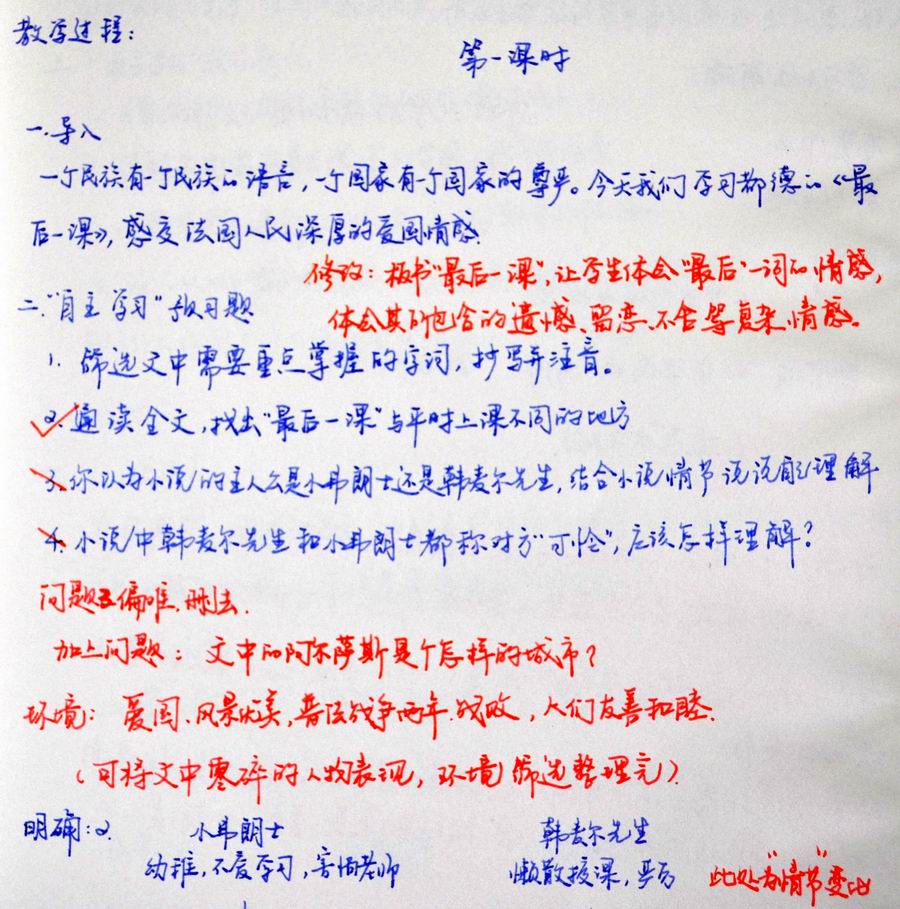 教学过程：
第一课时
一.导入
一个民族有一个民族的语言，一个国家有一个国家的尊严。今天我们学习都德的《最
后一课》，感受法国人民深厚的爱国情感.
修改：板书"最后一课"，让学生体会"最后"一词的情感，
体会其所包含的遗憾、留恋、不舍等复杂情感。
二."自主学习"预习题
1. 筛选文中需要重点掌握的字词，抄写并注音。
2. 通读全文，找出"最后一课"与平时上课不同的地方
3. 你认为小说的主人公是小弗朗士还是韩麦尔先生，结合小说情节说说你的理解
4. 小说中韩麦尔先生和小弗朗士都称对方"可怜"，应该怎样理解？
问题偏难.删去.
加上问题：文中的阿尔萨斯是个怎样的城市？
环境：爱国.风景优美，普法战争两年.战败，人们友善和睦.
（可将文中零碎的人物表现，环境筛选整理完）.
明确：2. 小弗朗士 韩麦尔先生
幼稚，不爱学习，害怕老师 懒散授课，严厉 此处为"情节"变化